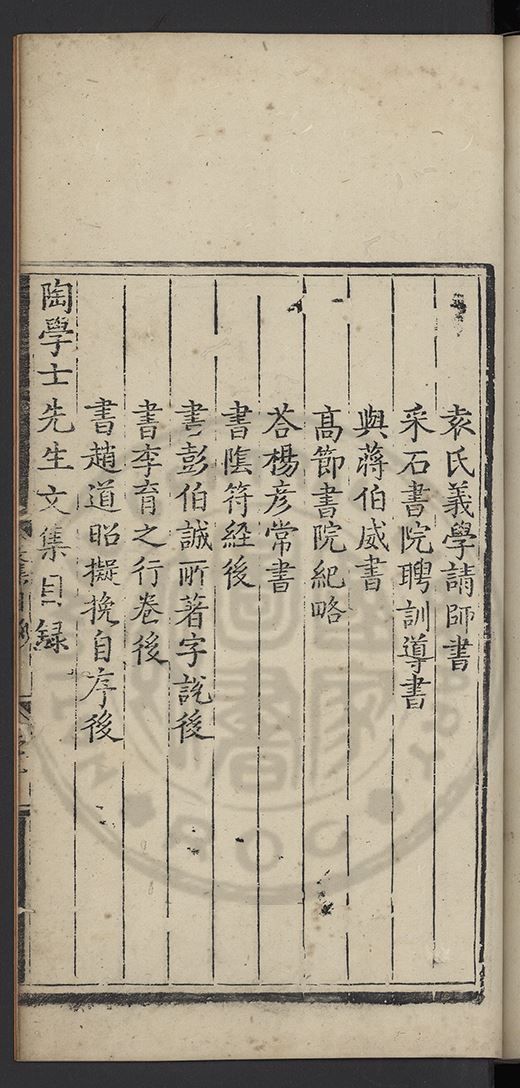 袁氏義學請師書
采石書院聘訓導書
與蔣伯威書
高節書院紀略
荅楊彦常書
書陰符経後
書彭伯誠所著字說後
書李育之行卷後
書趙道昭擬挽自序後
陶學士先生文集目録